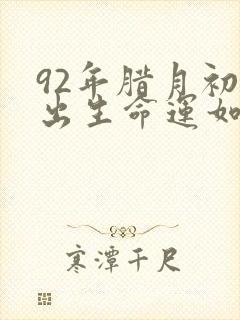 92年腊月初
出生命运如
寒潭千尺